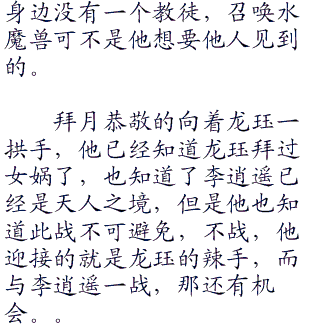 身边没有一个教徒，召唤水
魔兽可不是他想要他人见到
的。
拜月恭敬的向着龙珏一
拱手，他已经知道龙珏拜过
女娲了，也知道了李逍遥已
经是天人之境，但是他也知
道此战不可避免，不战，他
迎接的就是龙珏的辣手，而
与李逍遥一战，那还有机
会。。